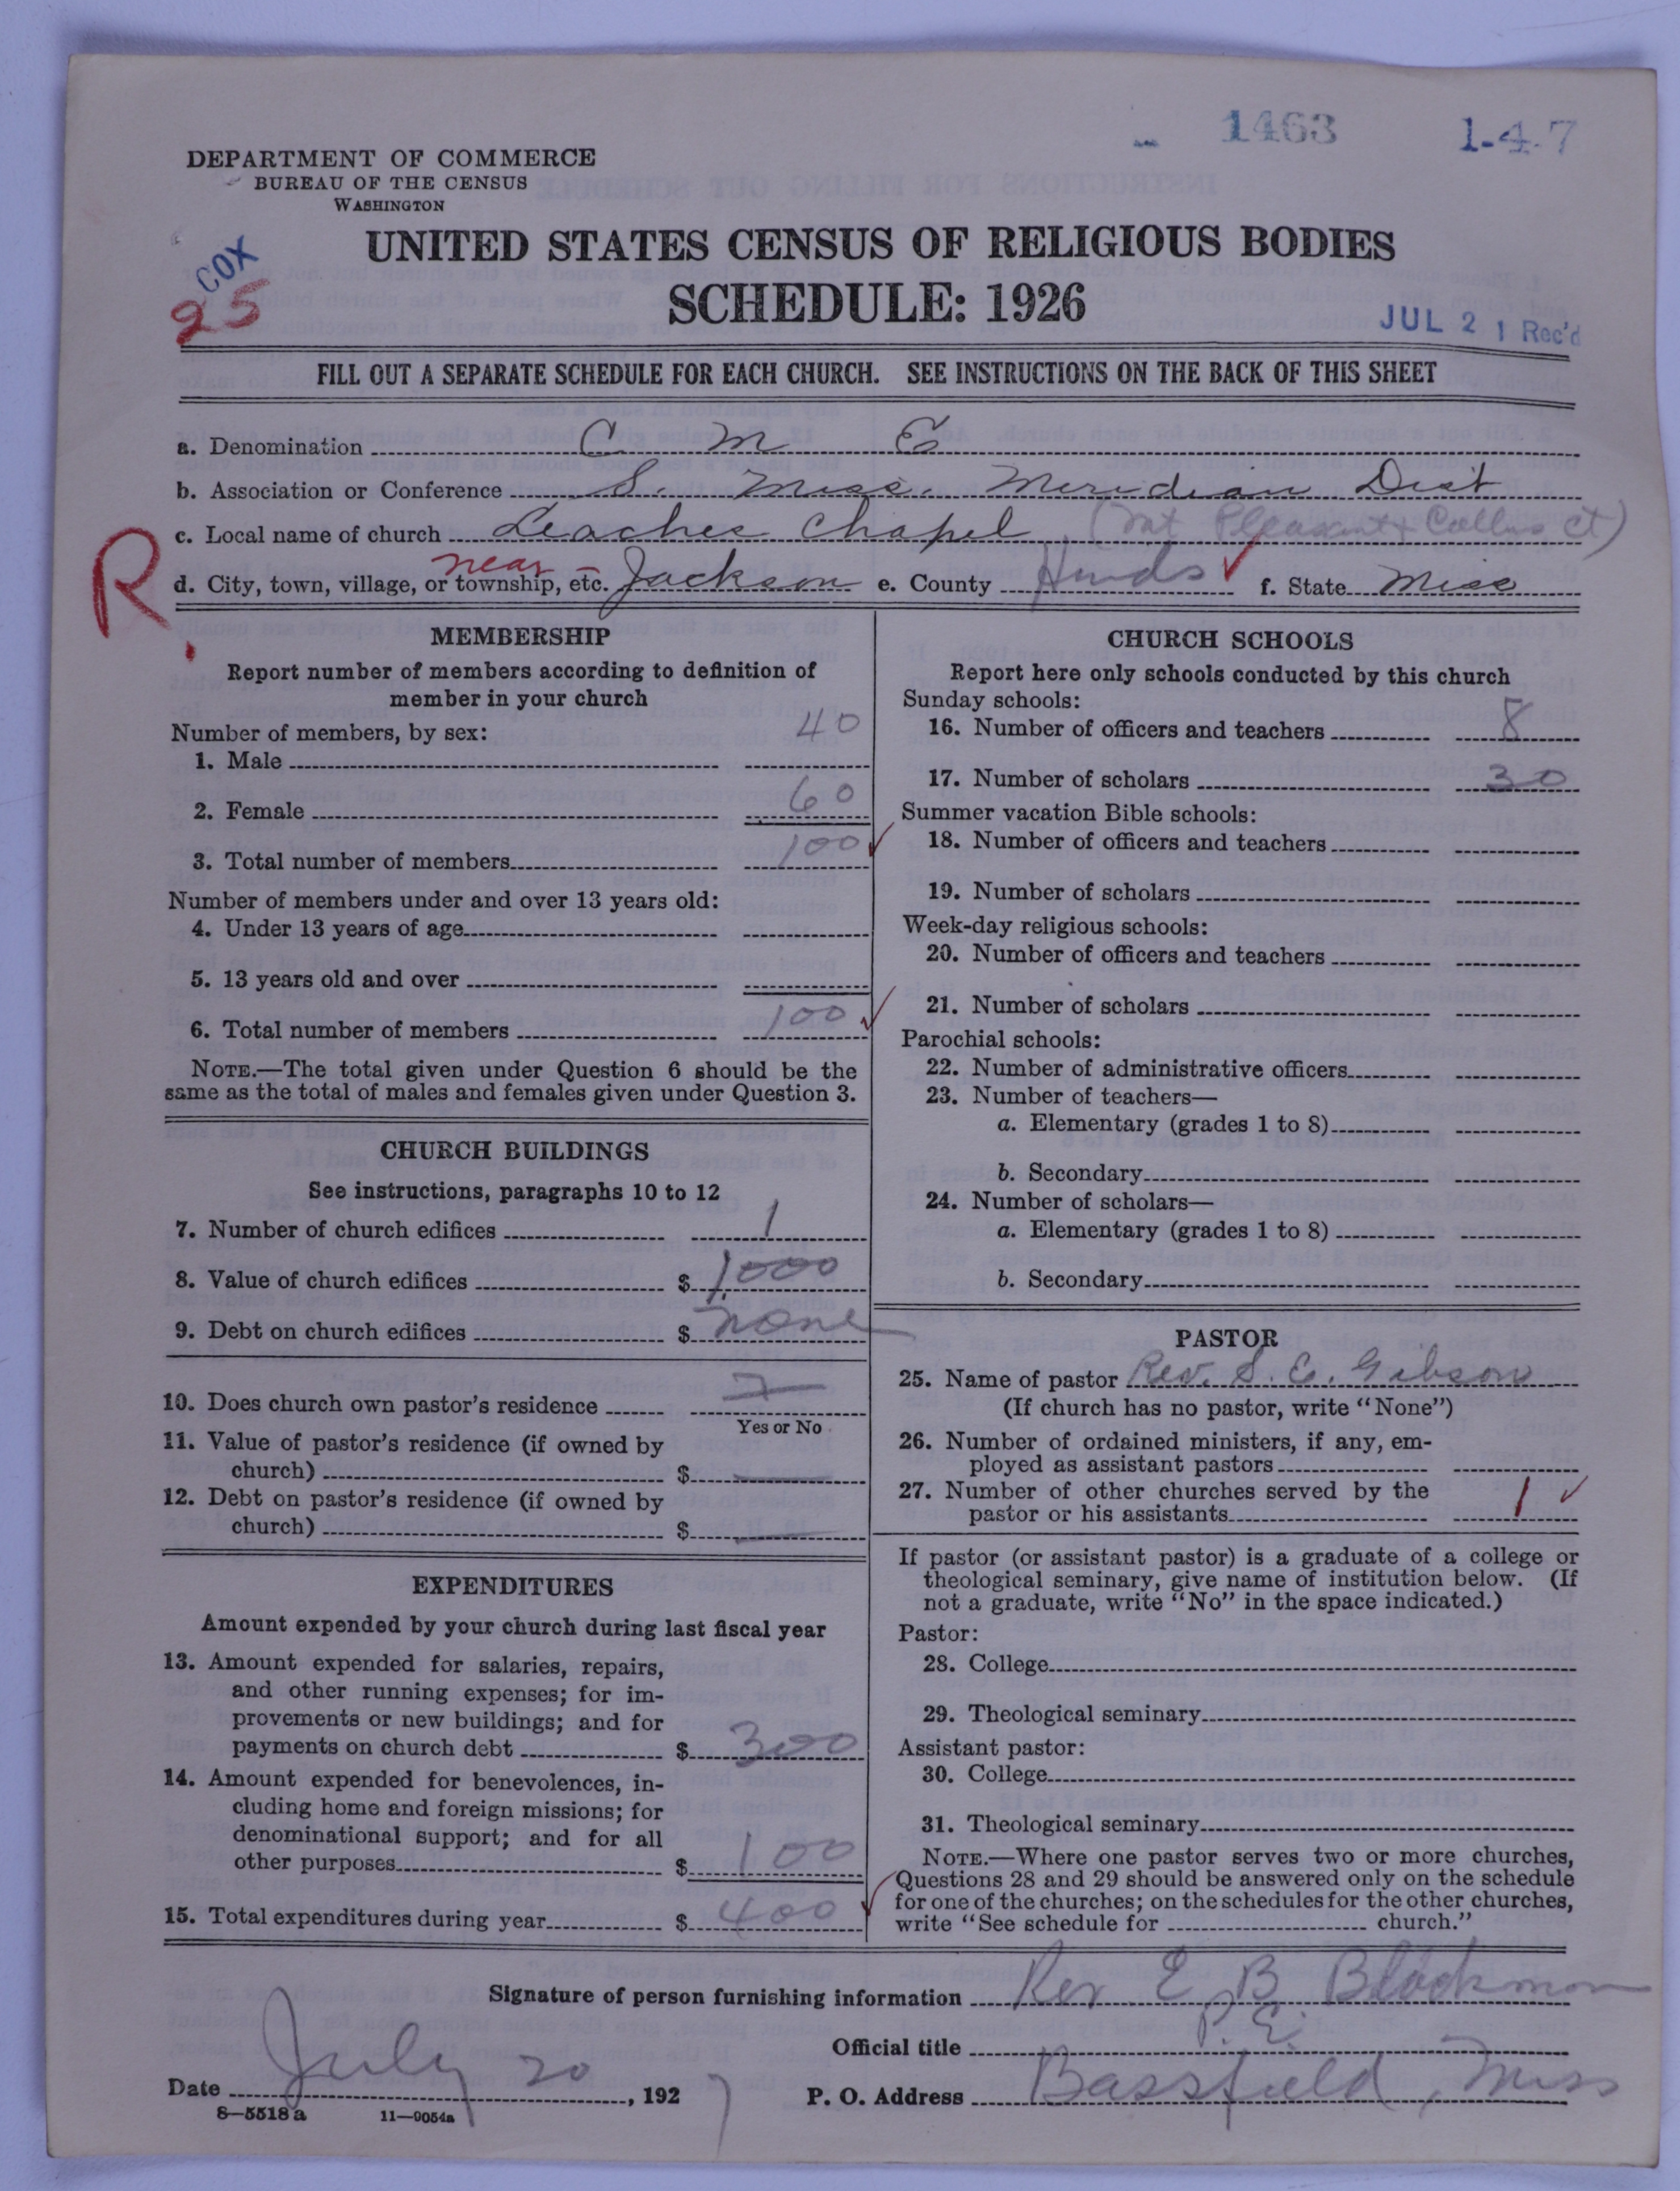 1463 1-4-7
DEPARTMENT OF COMMERCE
BUREAU OF THE CENSUS
WASHINGTON
UNITED STATES CENSUS OF RELIGIOUS BODIES
SCHEDULE: 1926
COX
25
JUL 21 Rec'd
FILL OUT A SEPARATE SCHEDULE FOR EACH CHURCH. SEE INSTRUCTIONS ON THE BACK OF THIS SHEET
a. Denomination C M E
b. Association or Conference S. Miss. Meridian Dist
c. Local name of church Leaches Chapel (Mt Pleasant & Collins ct)
R.
near
d. City, town, village, or township, etc. Jackson e. County Hinds f. State Miss
MEMBERSHIP
Report number of members according to definition of
member in your church
Number of members, by sex:
1. Male 40
2. Female 60
3. Total number of members 100
Number of members under and over 13 years old:
4. Under 13 years of age
5. 13 years old and over
6. Total number of members 100
NOTE.—The total given under Question 6 should be the
same as the total of males and females given under Question 3.
CHURCH BUILDINGS
See instructions, paragraphs 10 to 12
7. Number of church edifices 1
8. Value of church edifices $ 1,000
9. Debt on church edifices $ none
10. Does church own pastor's residence
Yes or No
11. Value of pastor's residence (if owned by
church) $
12. Debt on pastor's residence (if owned by
church) $
EXPENDITURES
Amount expended by your church during last fiscal year
13. Amount expended for salaries, repairs,
and other running expenses; for im-
provements or new buildings; and for
payments on church debt $ 300
14. Amount expended for benevolences, in-
cluding home and foreign missions; for
denominational support; and for all
other purposes $ 100
15. Total expenditures during year $ 400
CHURCH SCHOOLS
Report here only schools conducted by this church
Sunday schools:
16. Number of officers and teachers 8
17. Number of scholars 30
Summer vacation Bible schools:
18. Number of officers and teachers
19. Number of scholars
Week-day religious schools:
20. Number of officers and teachers
21. Number of scholars
Parochial schools:
22. Number of administrative officers
23. Number of teachers—
a. Elementary (grades 1 to 8)
b. Secondary
24. Number of scholars—
a. Elementary (grades 1 to 8)
b. Secondary
PASTOR
25. Name of pastor Rev. S. E. Gibson
(If church has no pastor, write "None")
26. Number of ordained ministers, if any, em-
ployed as assistant pastors
27. Number of other churches served by the
pastor or his assistants 1
If pastor (or assistant pastor) is a graduate of a college or
theological seminary, give name of institution below. (If
not a graduate, write "No" in the space indicated.)
Pastor:
28. College
29. Theological seminary
Assistant pastor:
30. College
31. Theological seminary
NOTE.—Where one pastor serves two or more churches,
Questions 28 and 29 should be answered only on the schedule
for one of the churches; on the schedules for the other churches,
write "See schedule for church."
Signature of person furnishing information Rev E B Blackmon
Official title P. E.
Date July 20, 1927 P. O. Address Bassfield, Miss
8—5518 a 11—9054a